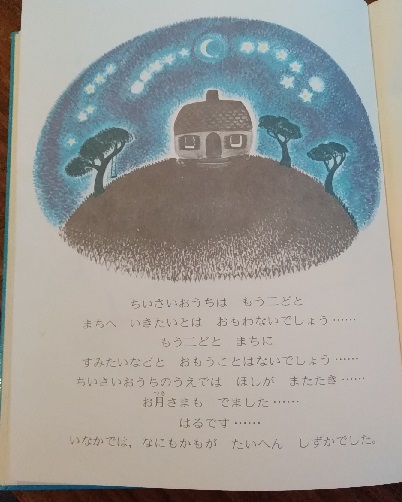 ちいさいおうちは　もう二どと
まちへ　いきたいとは　おもわないでしょう……
もう二どと　まちに
すみたいなどと　おもうことはないでしょう……
ちいさいおうちのうえでは　ほしが　またたき……
お月さまも　でました……
はるです……
いなかでは，なにもかもが　たいへん　しずかでした。